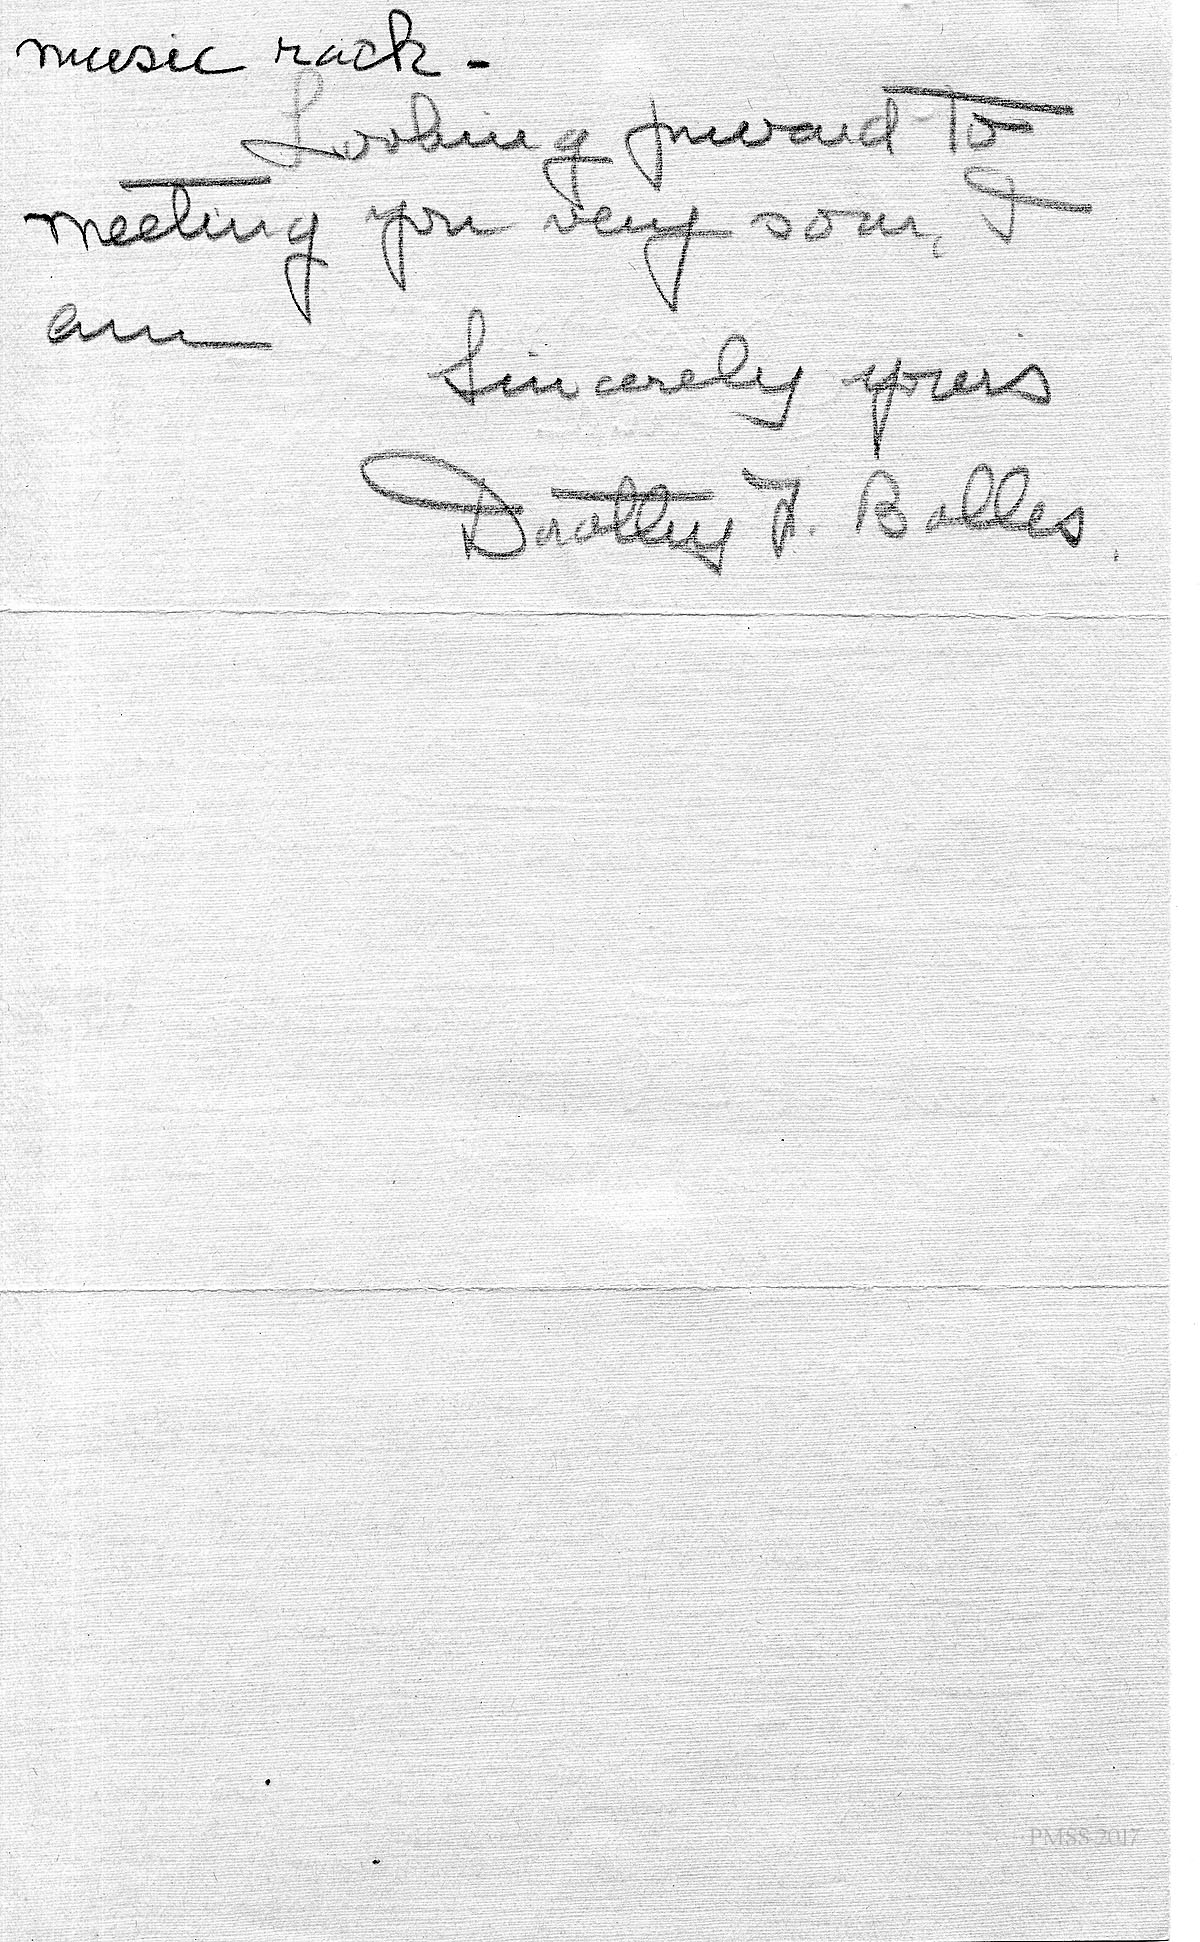 music rack -
Looking forward to
meeting you very soon, I
am
Sincerely yours
Dorothy F. Bolles.
PMSS 2017